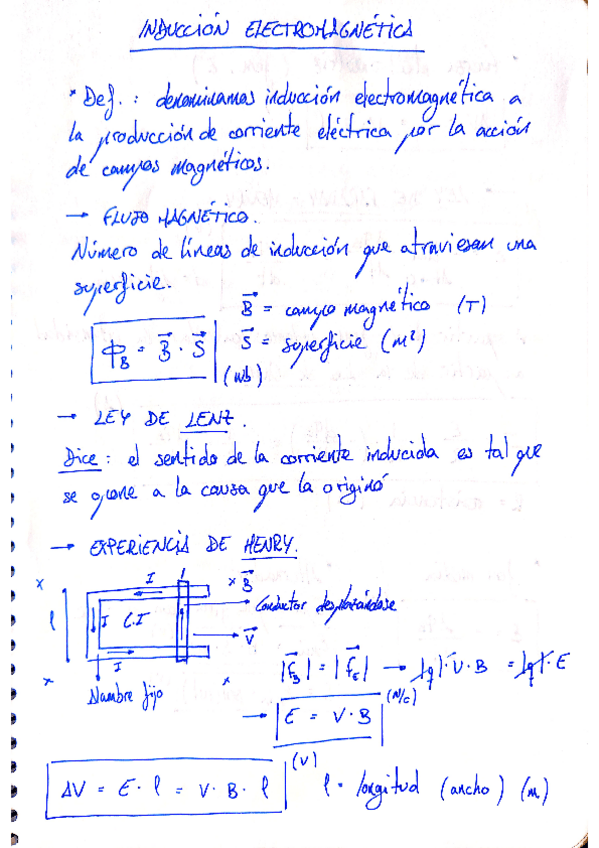 INDUCCIÓN ELECTROMAGNÉTICA
* Def. : denominamos inducción electromagnética a
la producción de corriente eléctrica por la acción
de campos magnéticos.
→ FLUJO MAGNÉTICO.
Número de líneas de inducción que atraviesan una
superficie.
B⃗ = campo magnético (T)
Φ_B = B⃗ · S⃗ (wb)
S⃗ = superficie (m²)
→ LEY DE LENZ.
Dice : el sentido de la corriente inducida es tal que
se opone a la causa que la originó
→ EXPERIENCIA DE HENRY.
x I x B⃗
Conductor desplazándose
l I C.I
V⃗
x I x
Alambre fijo
|F⃗_B| = |F⃗_E| → |q| · V · B = |q| · E
→ E = V · B (N/C)
ΔV = E · l = V · B · l (V) l = longitud (ancho) (m)